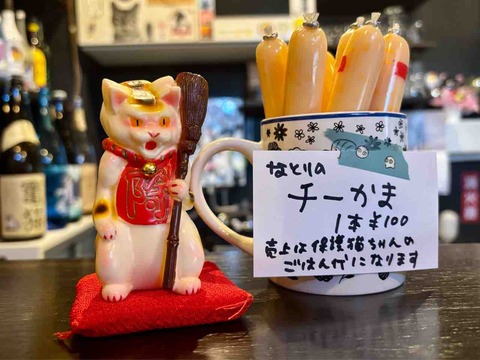 なとりの
チーかま
1本¥100
売上は保護猫ちゃんの
ごはん代になります